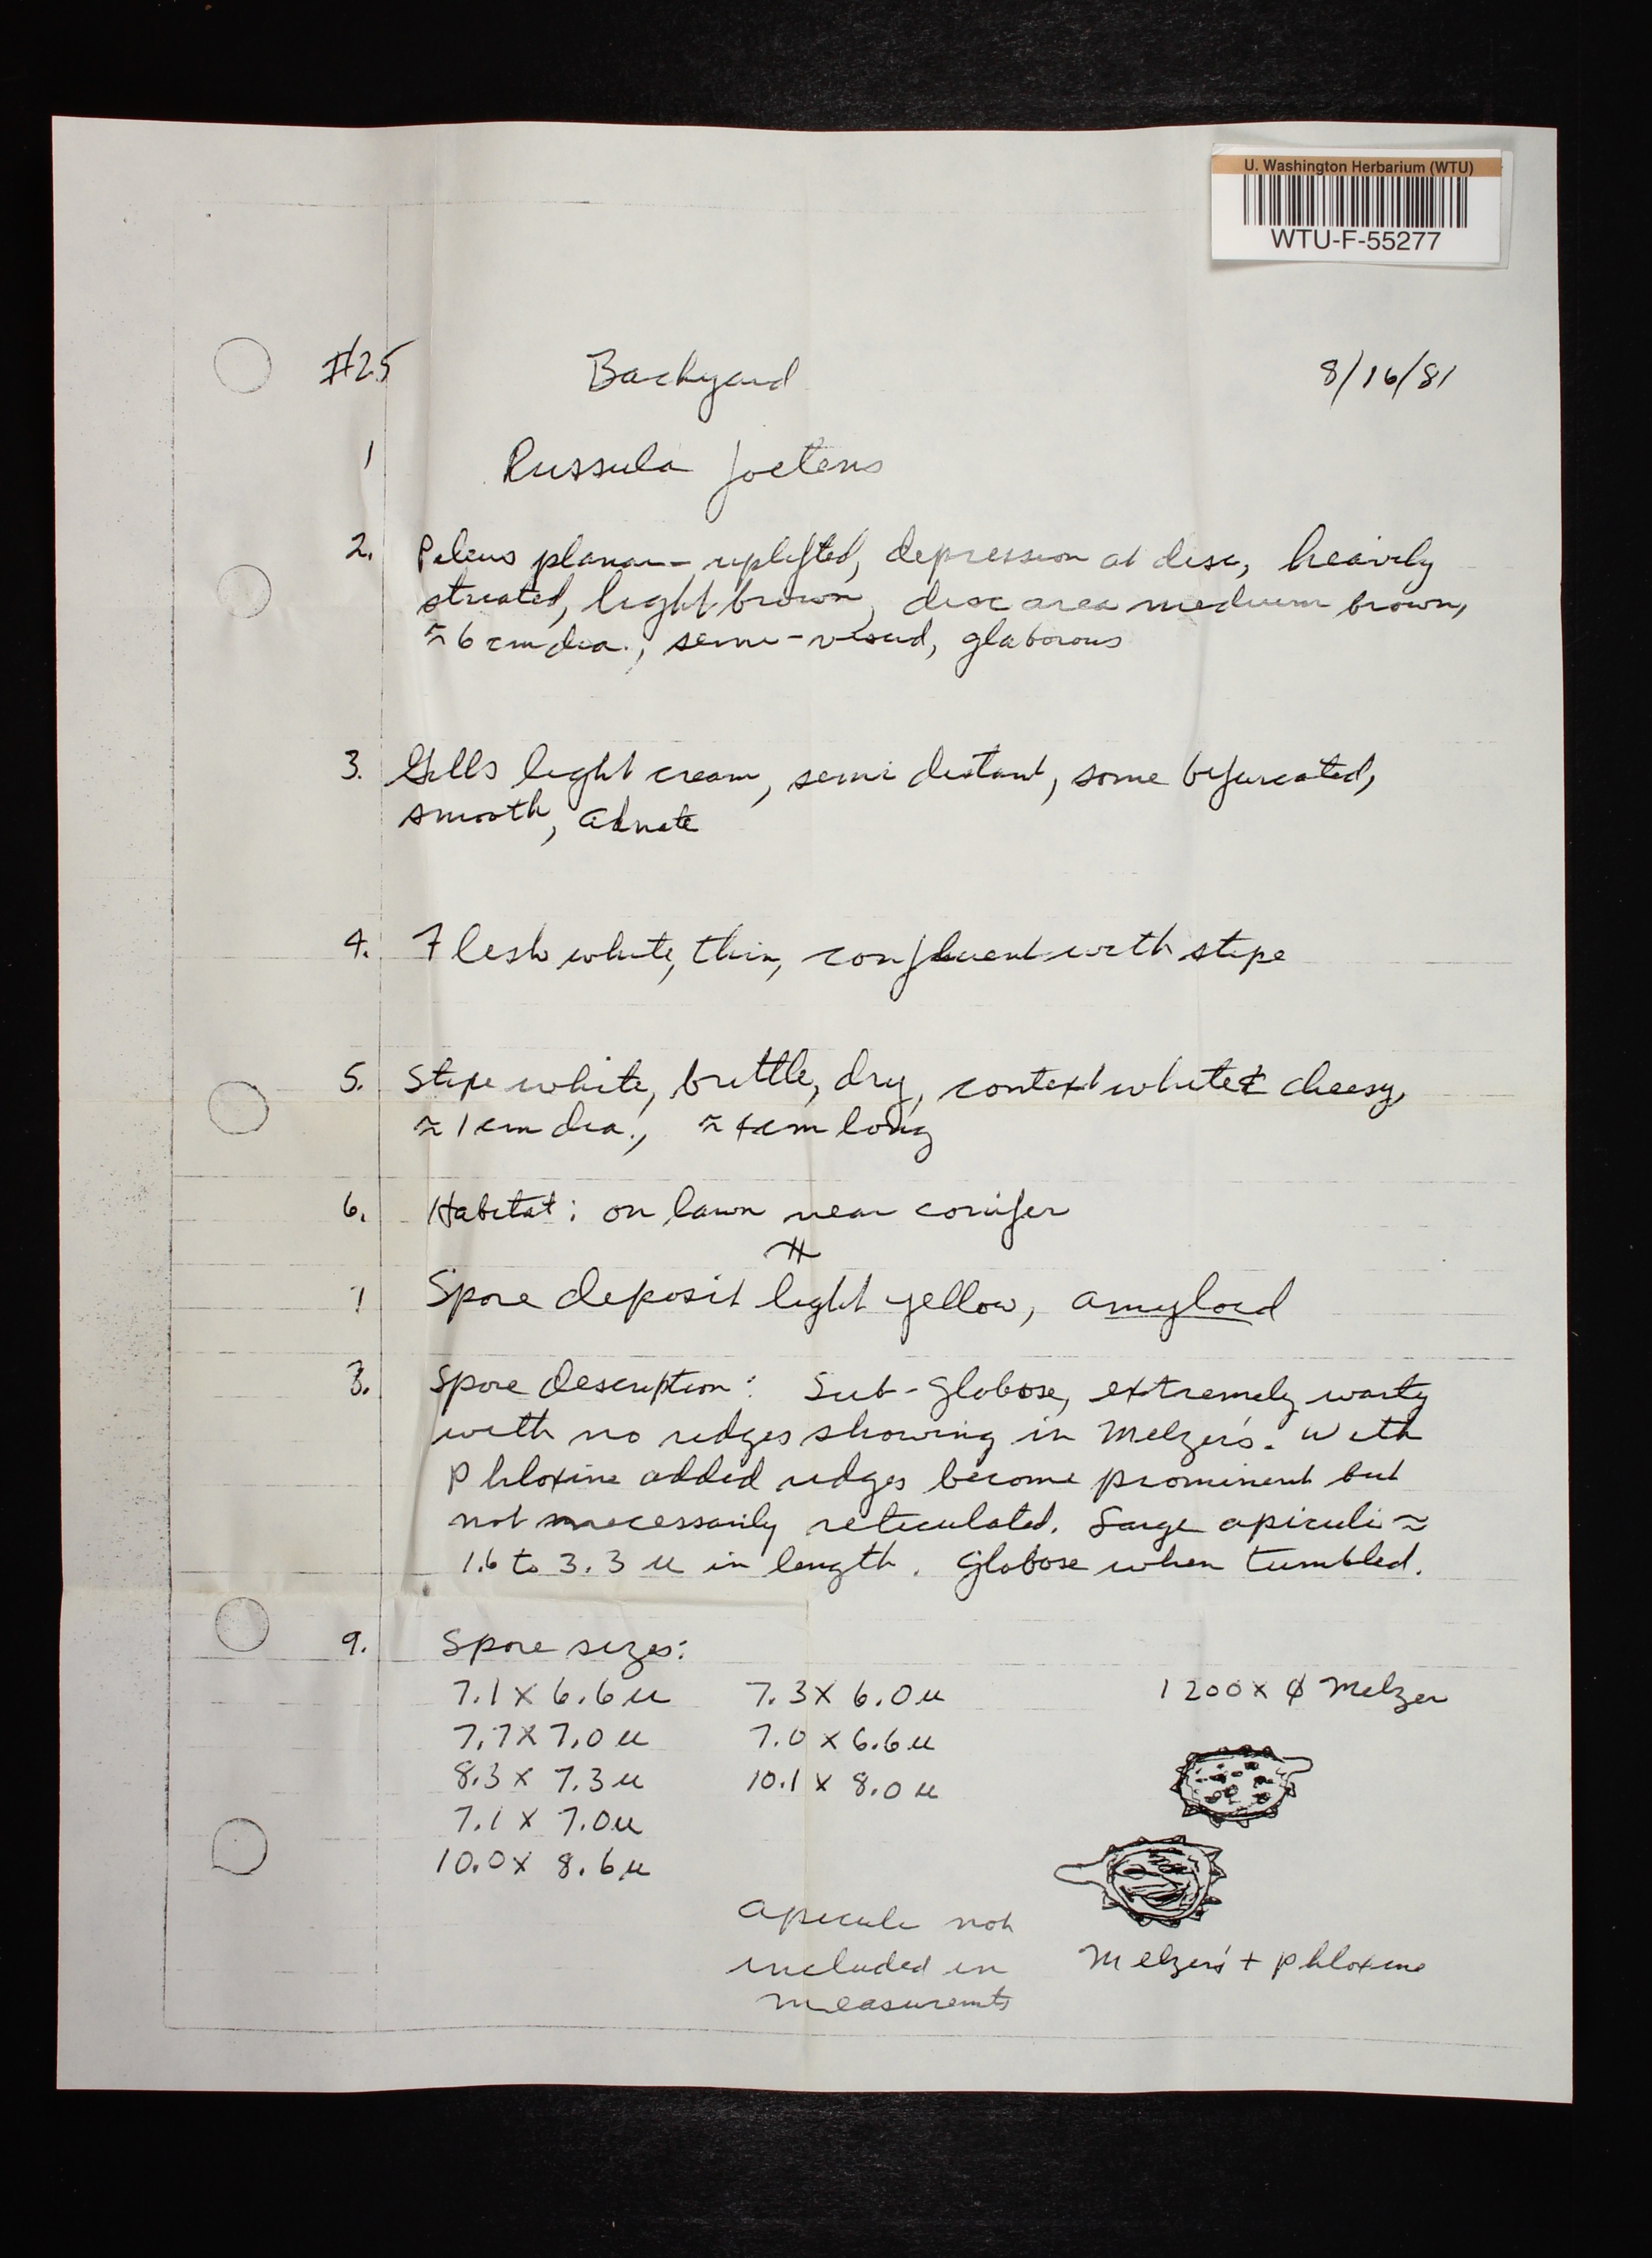 U. Washington Herbarium (WTU)
WTU-F-55277
#25 Backyard 8/16/81
1 Russula foetens
2. Pileus planar-uplifted, depression at disc, heavily
striated, light brown, disc area medium brown,
≈ 6 cm dia., semi-viscid, glaborous
3. Gills light cream, semi distant, some bifurcated,
smooth, adnate
4. Flesh white, thin, confluent with stipe
5. Stipe white, brittle, dry, context white & cheesy,
≈ 1 cm dia., ≈ 4 cm long
6. Habitat: on lawn near conifer
7 Spore deposit light yellow, amyloid
8. Spore description: Sub-globose, extremely warty
with no ridges showing in Melzer's. With
Phloxine added ridges become prominent but
not necessarily reticulated. Large apiculi ≈
1.6 to 3.3 u in length. Globose when tumbled.
9. Spore sizes:
7.1 X 6.6 u 7.3 X 6.0 u 1200 x φ Melzer
7.7 X 7.0 u 7.0 x 6.6 u
8.3 x 7.3 u 10.1 x 8.0 u
7.1 x 7.0 u
10.0 x 8.6 u
apiculi not
included in
measuremts
Melzer's + phloxine